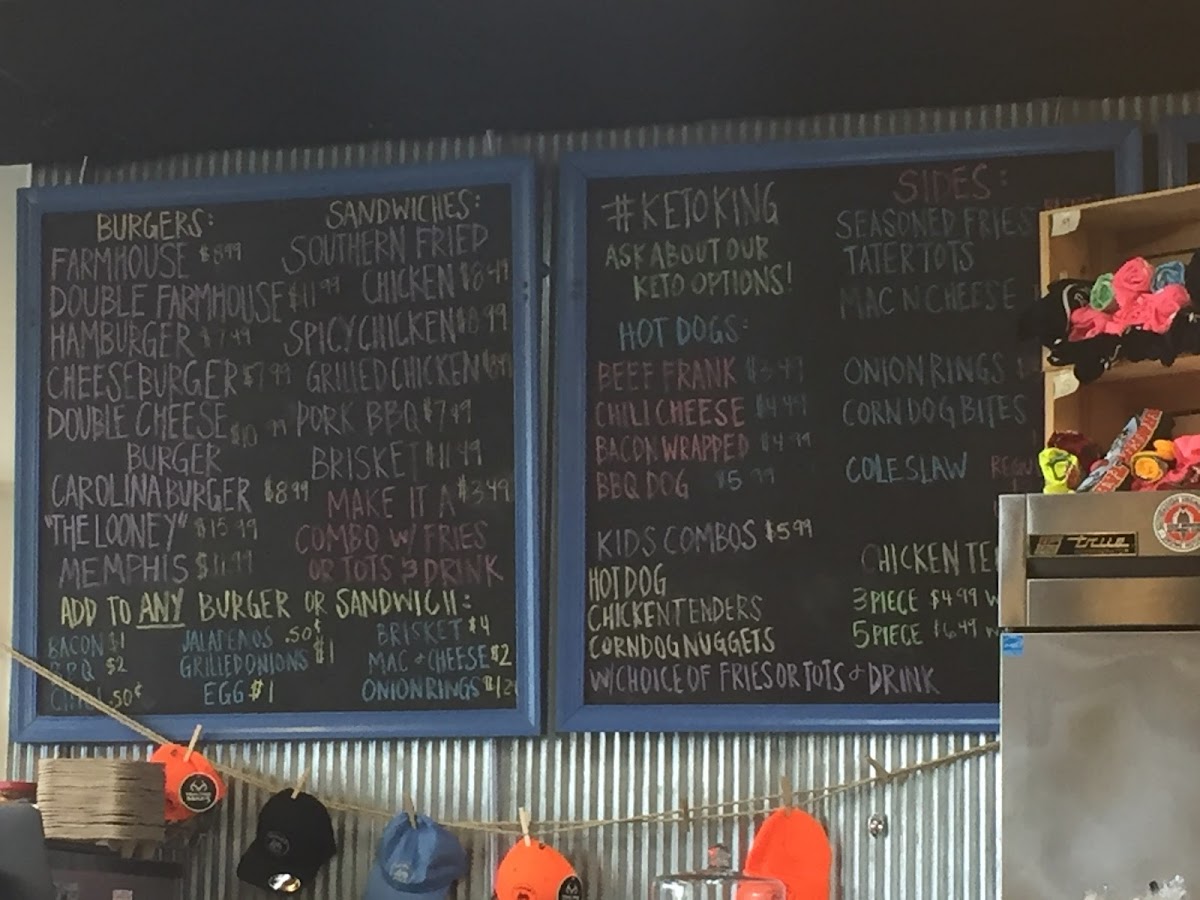 BURGERS:
FARMHOUSE $8.99
DOUBLE FARMHOUSE $11.99
HAMBURGER $7.49
CHEESEBURGER $7.99
DOUBLE CHEESE
BURGER
CAROLINA BURGER $8.99
"THE LOONEY" $15.99
MEMPHIS $11.99
SANDWICHES:
SOUTHERN FRIED
CHICKEN $8.49
SPICY CHICKEN
GRILLED CHICKEN
PORK BBQ $7.49
BRISKET $11.49
MAKE IT A $3.49
COMBO W/ FRIES
OR TOTS & DRINK
ADD TO ANY BURGER OR SANDWICH:
BACON $1
BBQ $2
.50¢
JALAPENOS .50¢
GRILLED ONIONS $1
EGG $1
BRISKET $4
MAC & CHEESE $2
ONION RINGS
#KETOKING
ASK ABOUT OUR
KETO OPTIONS!
HOT DOGS:
BEEF FRANK $3.49
CHILI CHEESE $4.49
BACON WRAPPED $4.99
BBQ DOG $5.99
KIDS COMBOS $5.99
HOT DOG
CHICKEN TENDERS
CORNDOG NUGGETS
W/CHOICE OF FRIES OR TOTS & DRINK
SIDES:
SEASONED FRIES
TATER TOTS
MAC N CHEESE
ONION RINGS
CORN DOG BITES
COLESLAW
CHICKEN TE
3 PIECE $4.99 W
5 PIECE $6.49 W
true